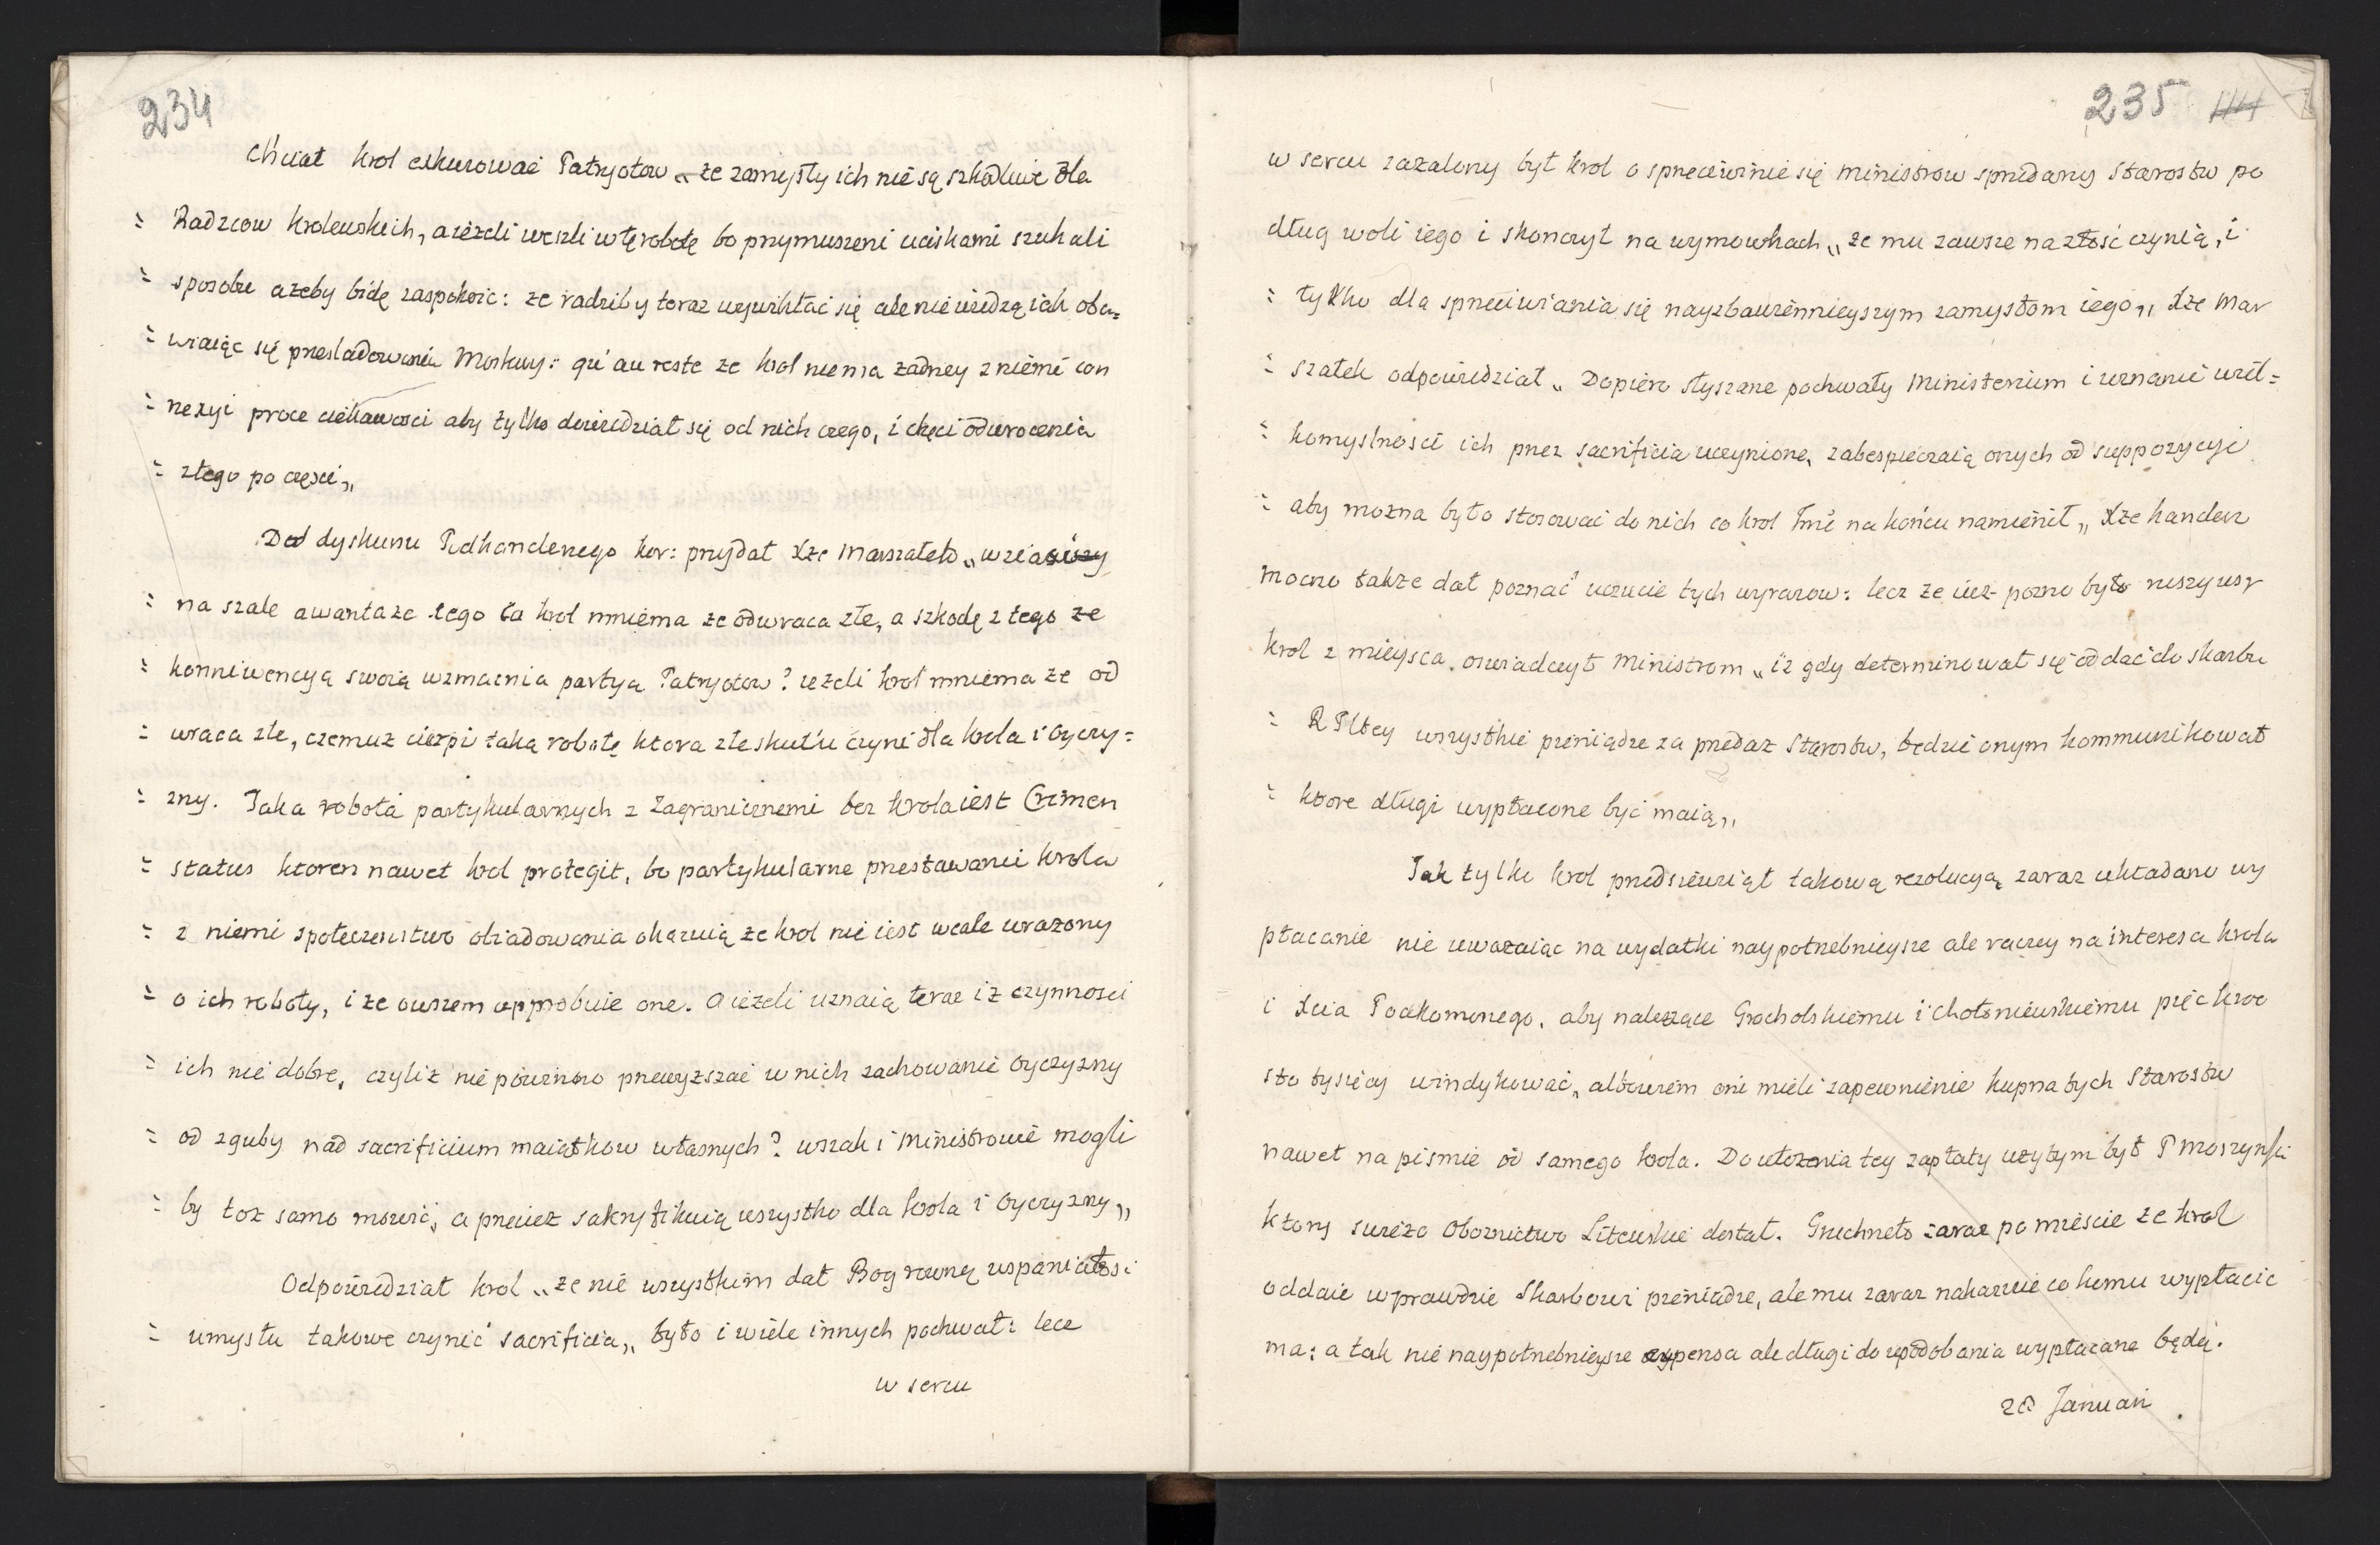 234
Chciał krol exkuzowac Patryotow „ ze zamysły ich nie są szkodliwe dla
= Radzcow krolewskich, a iezeli weszli w tę robotę bo przymuszeni uciskami szukali
= sposobu azeby bidę zaspokoic: ze radziby teraz wywikłać się ale nie wiedzą iak oba=
= wiaiąc się przesladowania Moskwy: qu'au reste ze krol niema zadney z niemi con
= nexyi procz ciekawosci aby tylko dowiedział się od nich czego, i chęci odwrocenia
= złego po części„
Do dyskursu Podkanclerzego kor: przydał Xze Marszałek „ wziąwszy
= na szale awantaze tego co krol mniema ze odwraca złe, a szkodę z tego ze
= konniwencyą swoią wzmacnia partyą Patryotow? iezeli krol mniema ze od
= wraca złe, czemuz cierpi taką robotę ktora złe skutki czyni dla krola i oyczy=
= zny. Taka robota partykularnych z Zagranicznemi bez krola iest Crimen
= status ktoren nawet krol protegit, bo partykularne przestawanie krola
= z niemi społeczenstwo obiadowania okazuią ze krol nie iest wcale urazony
= o ich roboty, i ze owszem approbuie one. a iezeli uznaią teraz iz czynnosci
= ich nie dobre, czyliz nie powinno przewyzszać w nich zachowanie oyczyzny
= od zguby nad sacrificium maiątkow własnych? wszak i Ministrowie mogli
= by toz samo mowić, a przeciez sakryfikuią wszystko dla krola i oyczyzny„
Odpowiedział krol „ ze nie wszystkim dał Bog rowną wspaniałosi
= umysłu takowe czynić sacrificia„ było i wiele innych pochwał: lecz
w sercu
235
w sercu zazalony był krol o sprzeciwinie się ministrow sprzedarzy Starostw po
dług woli iego i skonczył na wymowkach „ ze mu zawsze na złość czynią, i
= tylko dla sprzeciwiania się nayzbawiennieyszym zamysłom iego„ Xze Mar
= szałek odpowiedział „ Dopiero słyszane pochwały Ministerium i uznanie wiel=
= komyslnosci ich przez sacrificia uczynione, zabespieczaią onych od suppozycyi
= aby mozna było stosować do nich co krol Jmć na końcu namienił„ Xze kanclerz
mocno takze dał poznać uczucie tych wyrazow: lecz ze iuz pozno było ruszywszy
krol z mieysca, oswiadczył Ministrom „ iz gdy determinował się oddać do skarbu
= R Pltey wszystkie pieniądze za przedaz Starostw, będzie onym kommunikował
= ktore długi wypłacone być maią„
Jak tylko krol przedsięwziął takową rezolucyą, zaraz układano wy
płacanie nie uwazaiąc na wydatki naypotrzebnieysze ale raczey na interesa krola
i Xcia Podkomorzego, aby nalezące Grocholskiemu i Chołoniewskiemu pięć kroc
sto tysięcy windykować, albowiem oni mieli zapewnienie kupna tych Starostw
nawet na pismie od samego krola. Do ułozenia tey zapłaty uzytym był P Moszynski
ktory swiezo Oboznictwo Litewskie dostał. Gruchneło zaraz po miescie ze krol
oddaie wprawdzie Skarbowi pieniądze, ale mu zaraz nakazuie co komu wypłacic
ma: a tak nie naypotrzebnieysze expensa ale długi do upodobania wypłacane będą.
28 Januarii